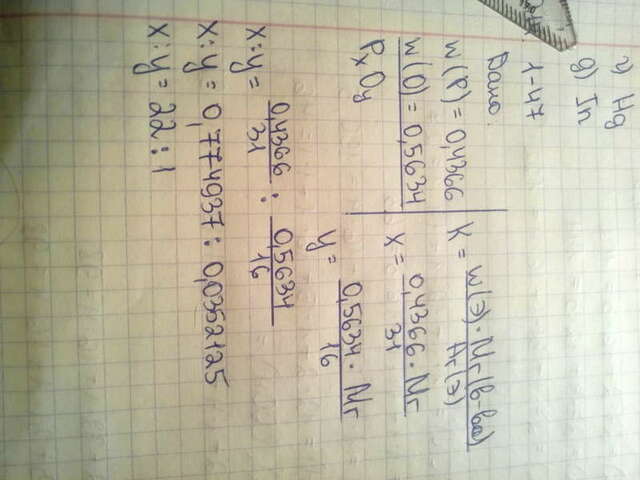 г) Hg
д) In
1-47
Дано:
w(P) = 0,4366
w(O) = 0,5634
PxOy
X = w(Э)·Mr(в-ва) / Ar(Э)
x = 0,4366·Mr / 31
y = 0,5634·Mr / 16
x:y = 0,4366 / 31 : 0,5634 / 16
x:y = 0,774937 : 0,0352125
x:y = 22 : 1